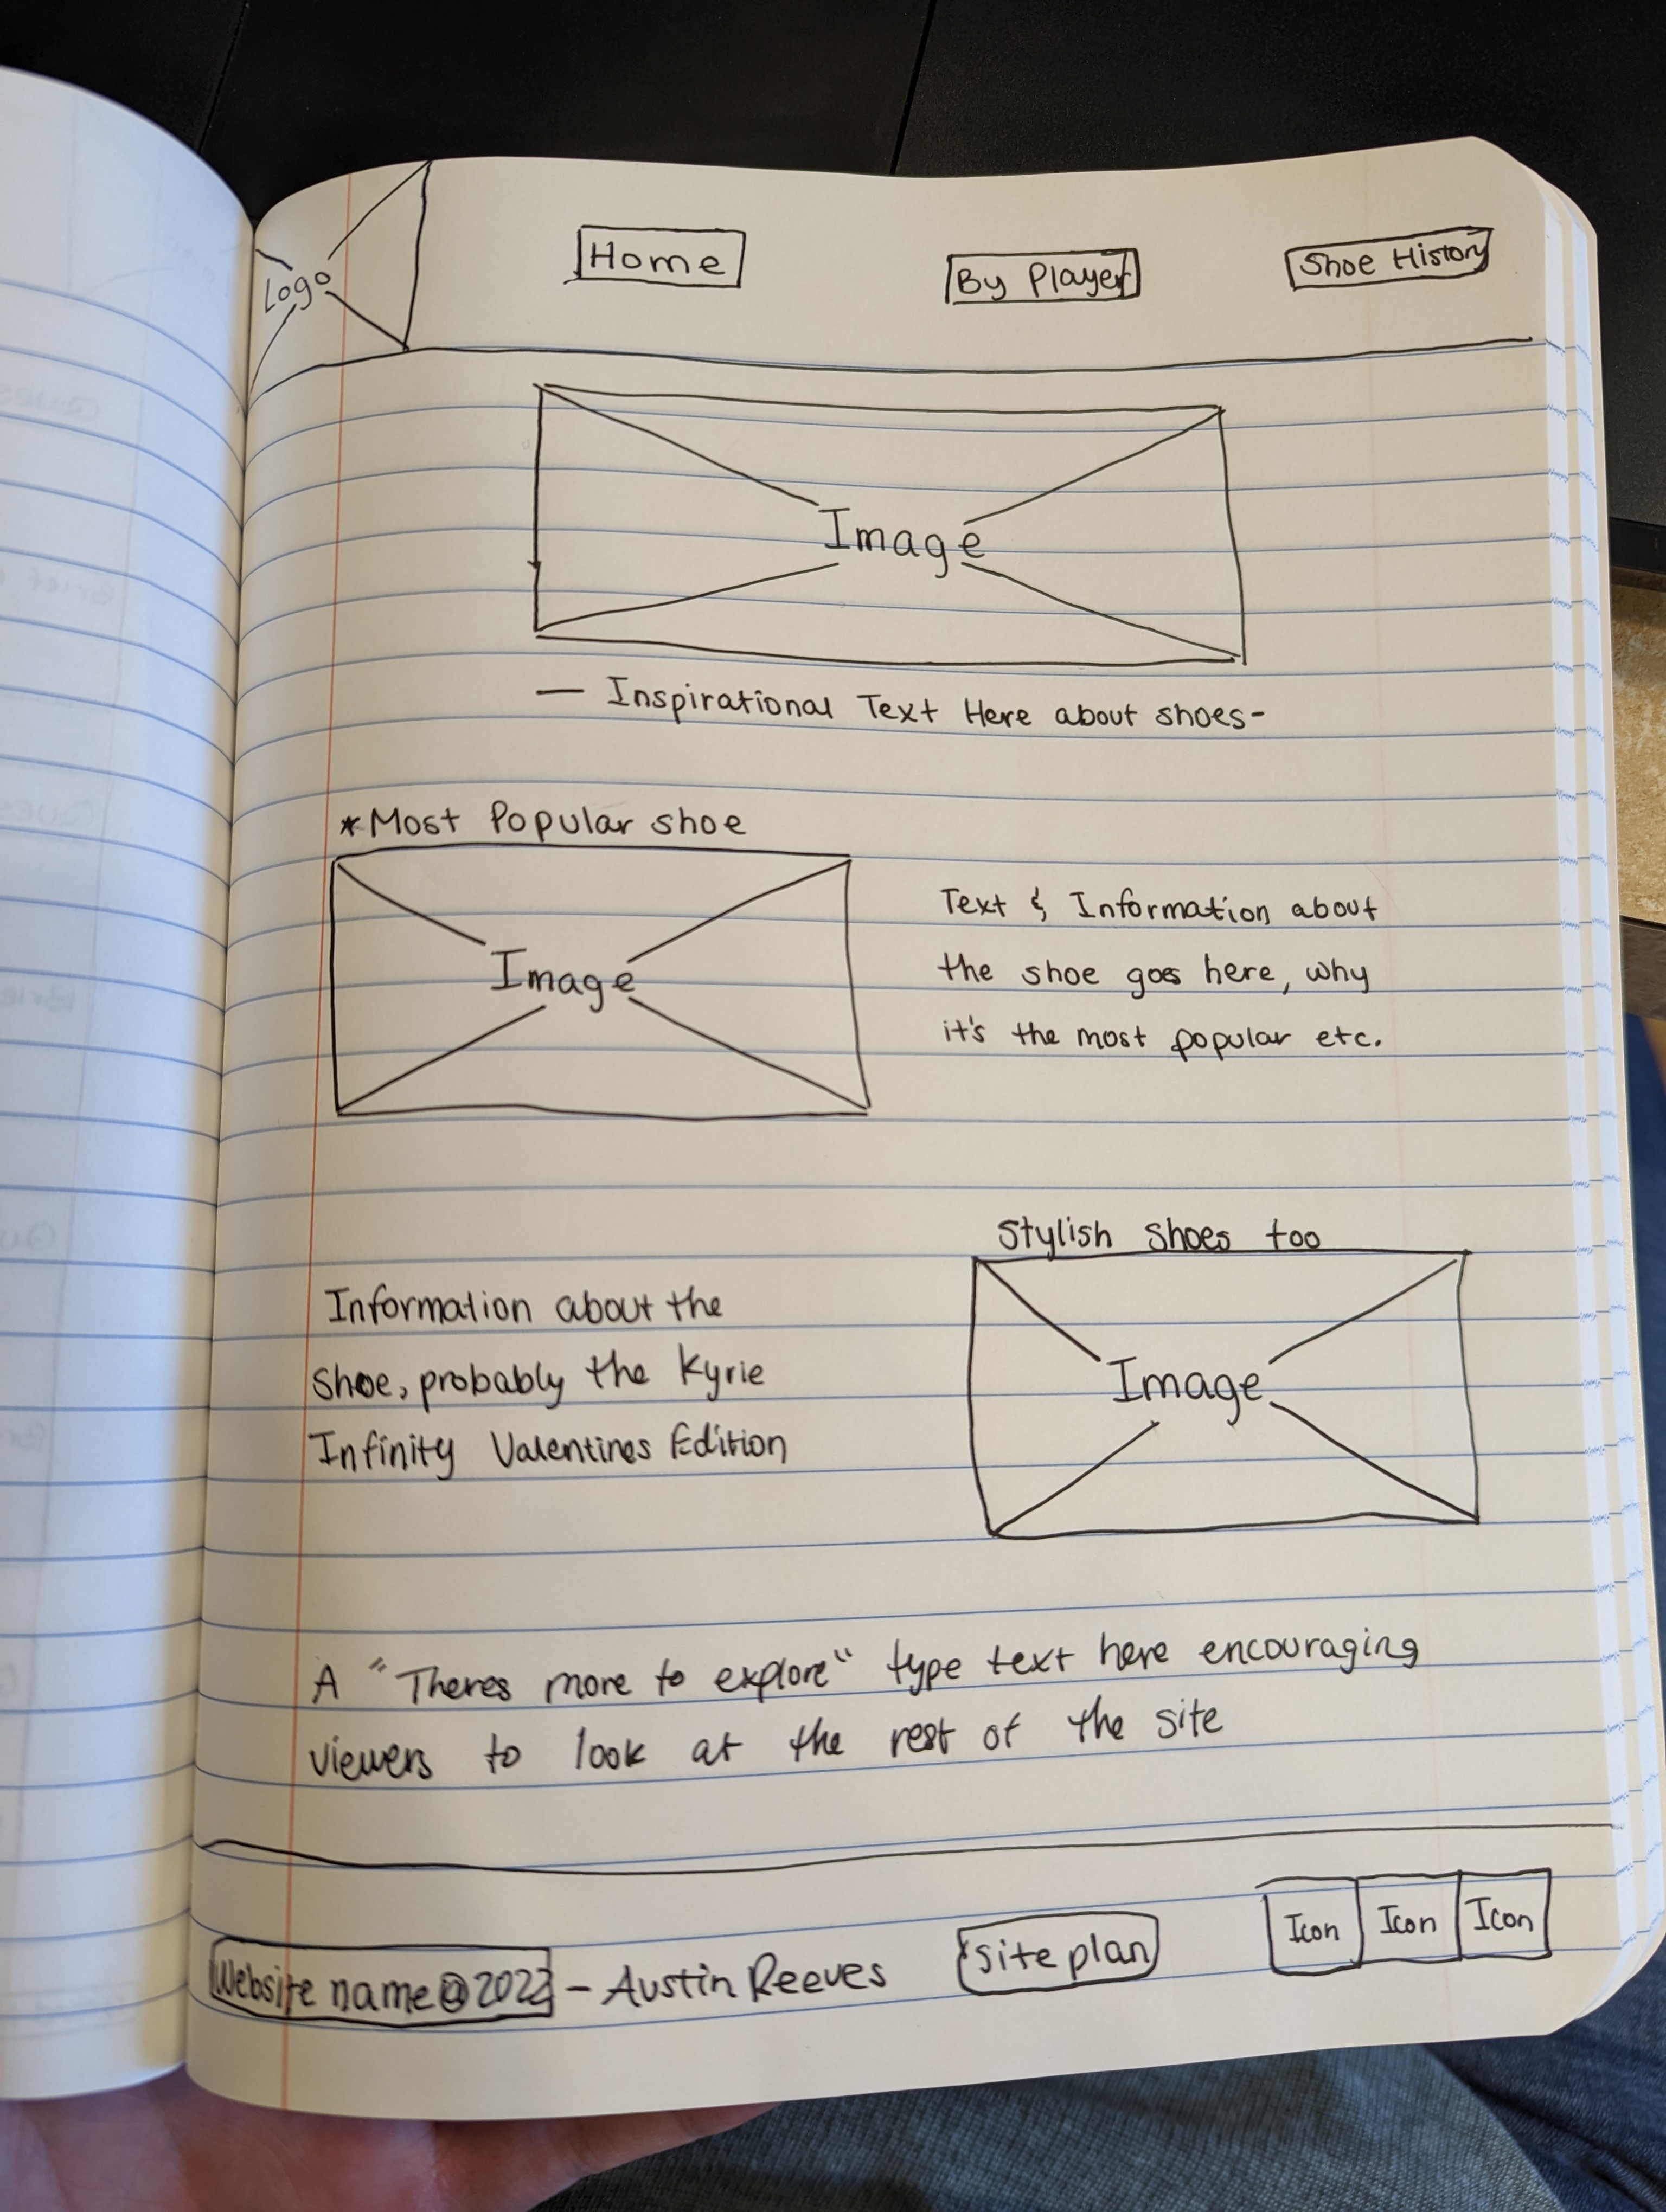 Logo
Home
By Player
Shoe History
Image
— Inspirational Text Here about shoes-
*Most Popular shoe
Image
Text & Information about
the shoe goes here, why
it's the most popular etc.
Stylish Shoes too
Information about the
shoe, probably the Kyrie
Infinity Valentines Edition
Image
A "Theres more to explore" type text here encouraging
viewers to look at the rest of the site
Website name@2022 - Austin Reeves
site plan
Icon Icon Icon